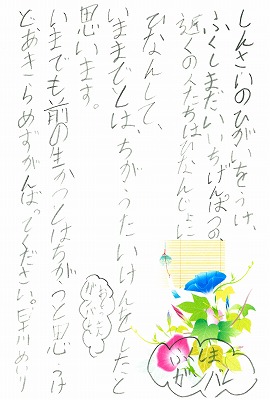 しんさいのひがいをうけ、
ふくしまだいいちげんぱつの、
近くの人たちはひなんじょに
ひなんして、
いままでとは、ちがうたいけんをしたと
思います。
いまでも前の生かつとはちがうと思うけ
どあきらめずがんばってください。
ふくしま
ガンバレ